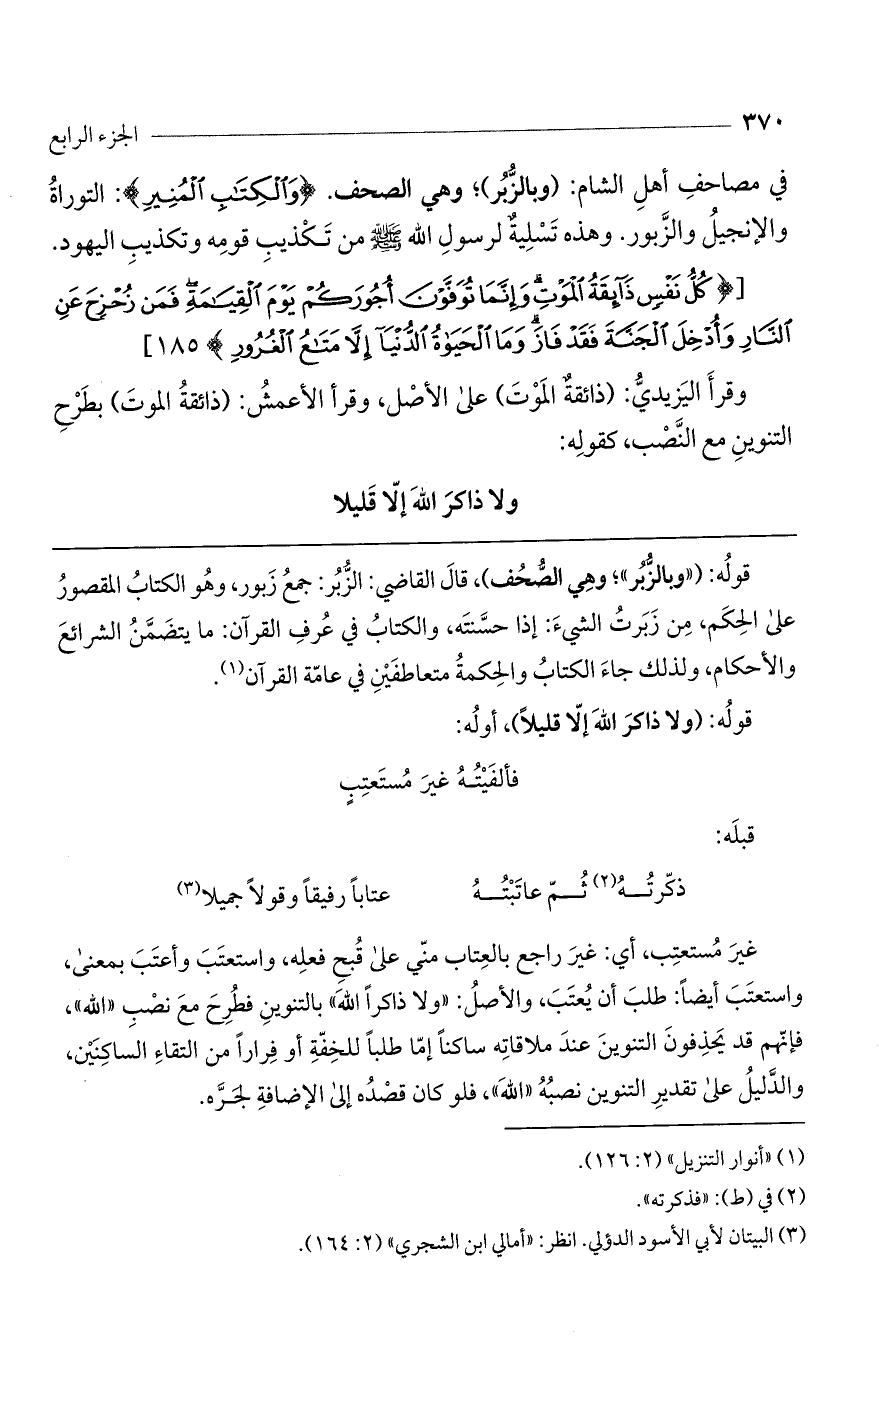 ٣٧٠ الجزء الرابع
في مصاحفِ أهلِ الشام: (وبالزُّبُر)؛ وهي الصحف. ﴿وَٱلْكِتَٰبِ ٱلْمُنِيرِ﴾: التوراةُ
والإنجيلُ والزَّبور. وهذه تَسْليةٌ لرسولِ الله ﷺ من تَكْذيبِ قومِه وتكذيبِ اليهود.
[﴿كُلُّ نَفْسٍ ذَآئِقَةُ ٱلْمَوْتِۗ وَإِنَّمَا تُوَفَّوْنَ أُجُورَكُمْ يَوْمَ ٱلْقِيَٰمَةِۖ فَمَن زُحْزِحَ عَنِ
ٱلنَّارِ وَأُدْخِلَ ٱلْجَنَّةَ فَقَدْ فَازَۗ وَمَا ٱلْحَيَوٰةُ ٱلدُّنْيَآ إِلَّا مَتَٰعُ ٱلْغُرُورِ﴾ ١٨٥]
وقرأَ اليَزيديُّ: (ذائقةٌ المَوْتَ) علىٰ الأصْل، وقرأ الأعمشُ: (ذائقةُ الموتَ) بطَرْحِ
التنوينِ مع النَّصْب، كقولِه:
ولا ذاكرَ اللهَ إلّا قَليلا
قولُه: («وبالزُّبُر»؛ وهِي الصُّحُف)، قالَ القاضي: الزُّبُر: جمعُ زَبور، وهُو الكتابُ المقصورُ
علىٰ الحِكَم، مِن زَبَرتُ الشيءَ: إذا حسَّنتَه، والكتابُ في عُرفِ القرآن: ما يتضَمَّنُ الشرائعَ
والأحكام، ولذلك جاءَ الكتابُ والحِكمةُ متعاطفَيْنِ في عامّة القرآن(١).
قولُه: (ولا ذاكرَ اللهَ إلّا قليلاً)، أولُه:
فألفَيْتُـهُ غيرَ مُستَعتِبٍ
قبلَه:
ذكّرتُـــهُ(٢) ثُـــمّ عاتَبْتُـــهُ عتاباً رفيقاً وقولاً جميلا(٣)
غيرَ مُستعتِب، أي: غيرَ راجع بالعِتاب منّي علىٰ قُبحِ فعلِه، واستعتَبَ وأعتَبَ بمعنىٰ،
واستعتَبَ أيضاً: طلبَ أن يُعتَبَ، والأصلُ: «ولا ذاكراً اللهَ» بالتنوينِ فطُرِحَ معَ نصْبِ «الله»،
فإنّهم قد يَحذِفونَ التنوينَ عندَ ملاقاتِه ساكناً إمّا طلباً للخِفّةِ أو فِراراً من التقاءِ الساكنَيْن،
والدَّليلُ علىٰ تقديرِ التنوين نصبُهُ «اللهَ»، فلو كان قصْدُه إلىٰ الإضافةِ لجَرَّه.
(١) «أنوار التنزيل» (٢: ١٢٦).
(٢) في (ط): «فذكرته».
(٣) البيتان لأبي الأسود الدؤلي. انظر: «أمالي ابن الشجري» (٢: ١٦٤).